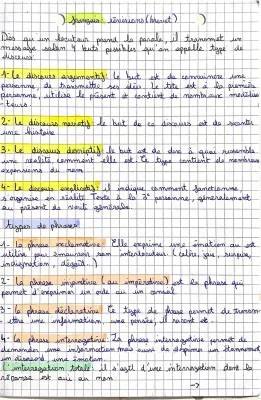 Français : révisions (brevet)
Dès qu'un locuteur prend la parole, il transmet un
message selon 4 buts possibles qu'on appelle type de
discours
1- Le discours argumentatif: le but est de convaincre une
personne, de transmettre ses idées. Le texte est à la première
personne, utilise le présent et contient de nombreux
2- Le discours narratif: le but de ce discours est de raconter
une histoire
3- Le discours descriptif: le but est de dire à quoi ressemble
une réalité comment elle est. Ce type contient de nombreuses
expansions du nom
4- Le discours explicatif: il indique comment fonctionne,
s'organise en réalité Texte à la 3e personne, généralement
au présent de vérité générale.
types de phrases
1- la phrase exclamative: Elle exprime une émotion ou est
utilisée pour émouvoir son interlocuteur. (colère, joie, surprise,
indignation, dégoût...)
2- la phrase injonctive (ou impérative) est la phrase qui
permet d'exprimer un ordre ou un conseil
3- la phrase déclarative: Ce type de phrase permet de transm-
-ettre une information, une pensée, il raconte et
4- la phrase interrogative: La phrase interrogative permet de
demander une information mais aussi de exprimer un étonnement
un désaccord une émotion
l'interrogation totale: il s'agit d'une interrogation dont la
réponse est oui ou non
→